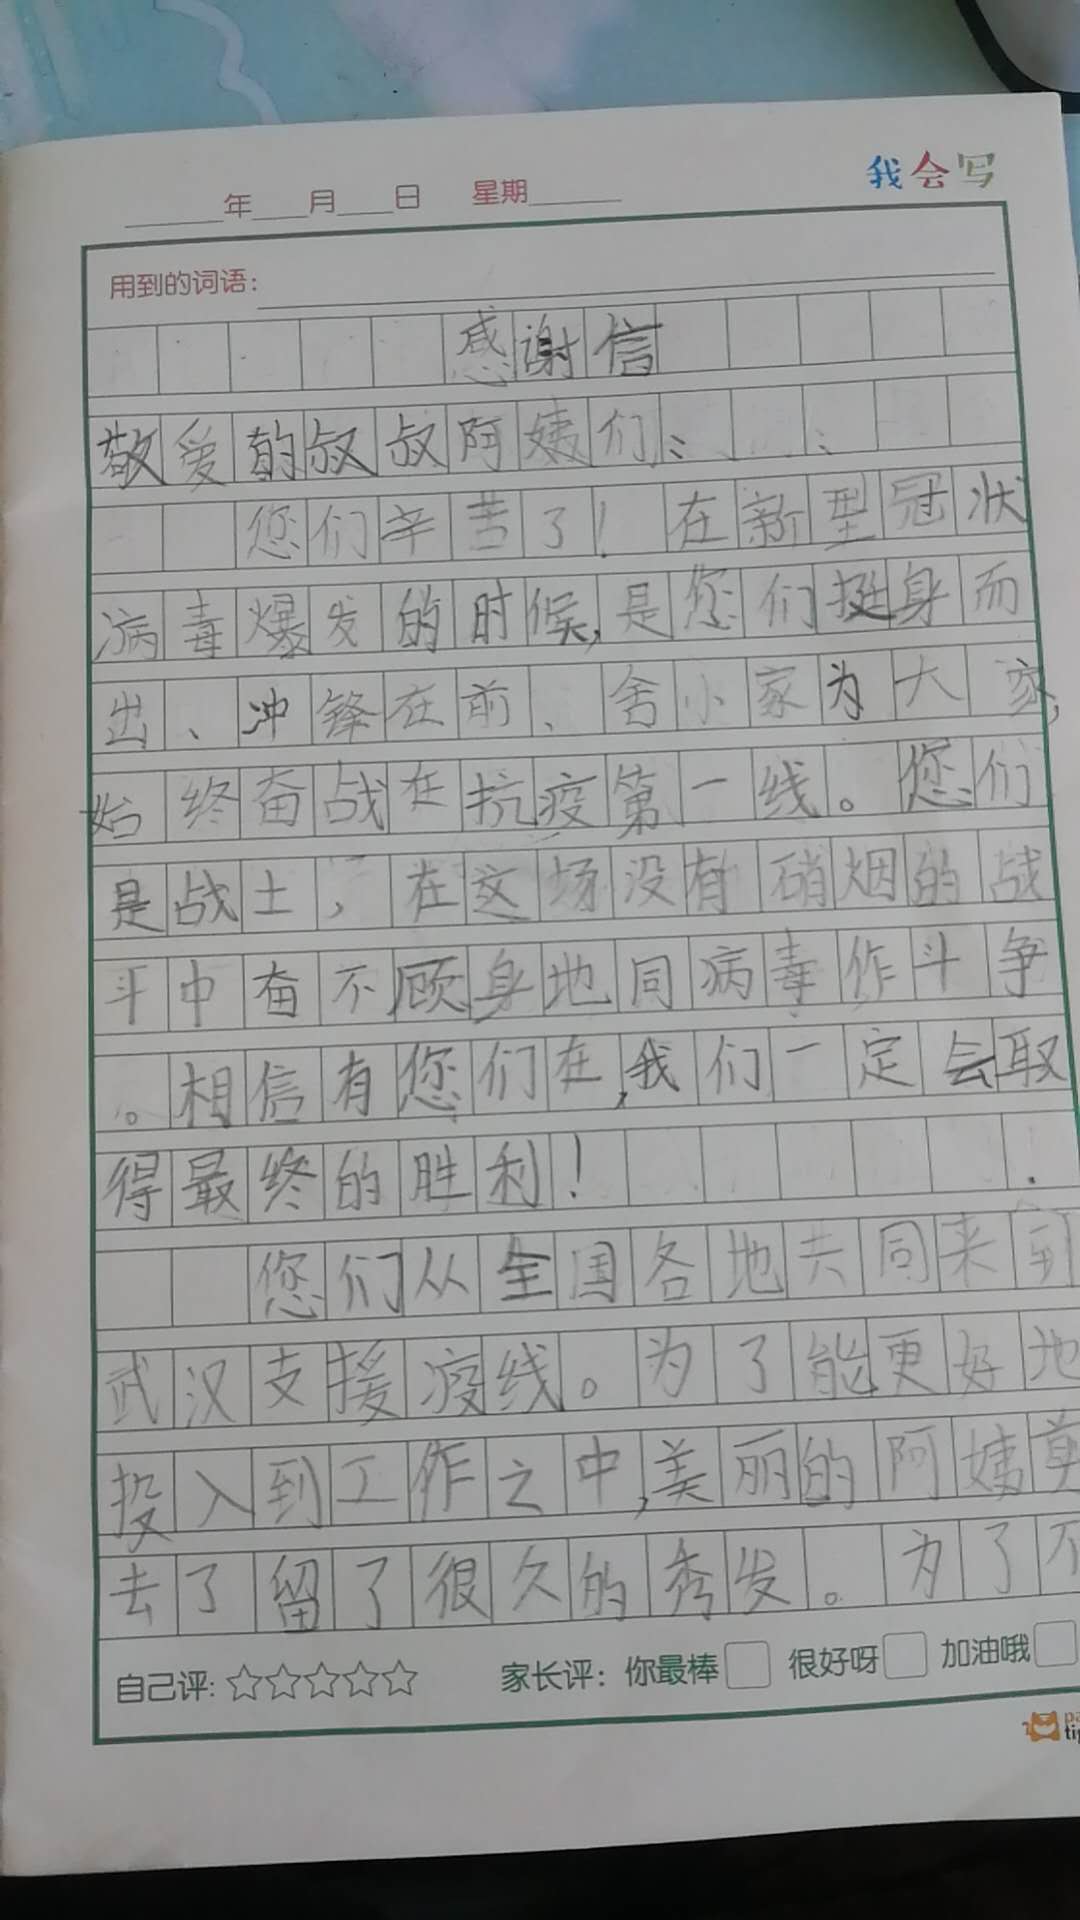 我会写
年 月 日 星期
用到的词语:
感谢信
敬爱的叔叔阿姨们:
您们辛苦了!在新型冠状
病毒爆发的时候,是您们挺身而
出、冲锋在前、舍小家为大家,
始终奋战在抗疫第一线。您们
是战士,在这场没有硝烟的战
斗中奋不顾身地同病毒作斗争
。相信有您们在,我们一定会取
得最终的胜利!
您们从全国各地共同来到
武汉支援疫线。为了能更好地
投入到工作之中,美丽的阿姨剪
去了留了很久的秀发。为了不
自己评: ☆☆☆☆☆ 家长评: 你最棒 很好呀 加油哦